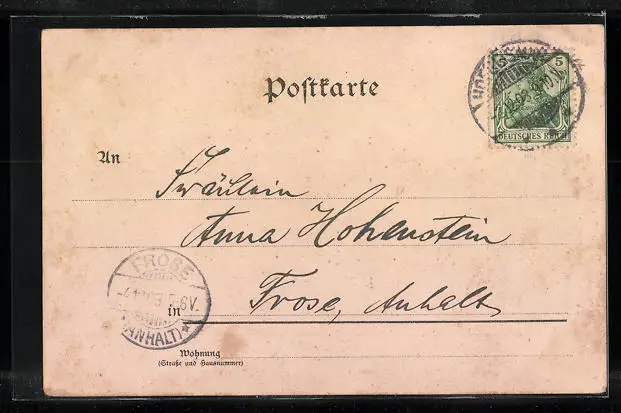 Postkarte
5
DEUTSCHES REICH
An
Fräulein
Anna Hohenstein
FROSE
in Frose, Anhalt
(ANHALT)
Wohnung
(Straße und Hausnummer)